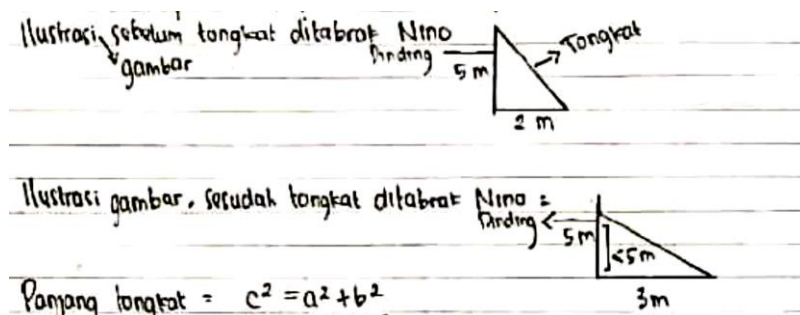 Ilustrasi sebelum tongkat ditabrak Nino
gambar
Dinding
5 m
Tongkat
2 m
Ilustrasi gambar, sesudah tongkat ditabrak Nino =
Dinding
5 m
<5m
3m
Panjang tongkat = c² = a² + b²